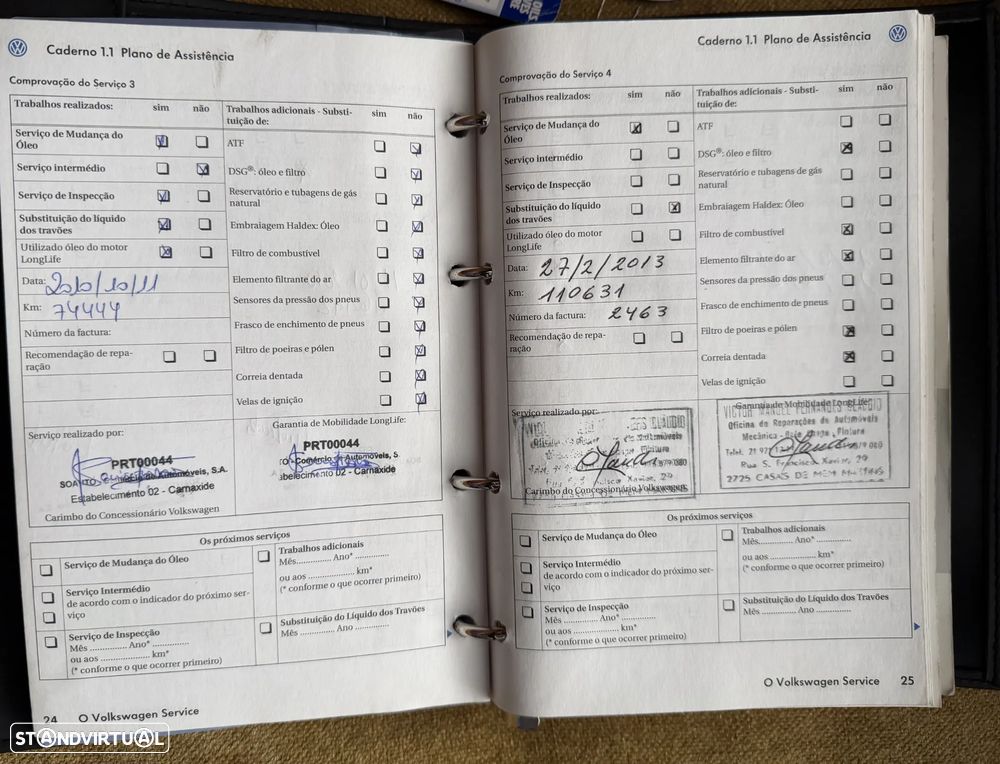 Caderno 1.1 Plano de Assistência
Comprovação do Serviço 3
Trabalhos realizados: sim não
Trabalhos adicionais - Substi-
tuição de: sim não
Serviço de Mudança do
Óleo
Serviço intermédio
Serviço de Inspecção
Substituição do líquido
dos travões
Utilizado óleo do motor
LongLife
Data: 2010/10/11
Km: 74444
Número da factura:
Recomendação de repa-
ração
ATF
DSG®: óleo e filtro
Reservatório e tubagens de gás
natural
Embraiagem Haldex: Óleo
Filtro de combustível
Elemento filtrante do ar
Sensores da pressão dos pneus
Frasco de enchimento de pneus
Filtro de poeiras e pólen
Correia dentada
Velas de ignição
Serviço realizado por:
Garantia de Mobilidade LongLife:
PRT00044
Automóveis, S.A.
Estabelecimento 02 - Carnaxide
PRT00044
Automóveis, S.
belecimento 02 - Carnaxide
Carimbo do Concessionário Volkswagen
Os próximos serviços
Serviço de Mudança do Óleo
Serviço Intermédio
de acordo com o indicador do próximo ser-
viço
Serviço de Inspecção
Mês .............. Ano* ..............
ou aos .................... km*
(* conforme o que ocorrer primeiro)
Trabalhos adicionais
Mês.............. Ano* ..............
ou aos .................... km*
(* conforme o que ocorrer primeiro)
Substituição do Líquido dos Travões
Mês .............. Ano ..............
24 O Volkswagen Service
Caderno 1.1 Plano de Assistência
Comprovação do Serviço 4
Trabalhos realizados: sim não
Trabalhos adicionais - Substi-
tuição de: sim não
Serviço de Mudança do
Óleo
Serviço intermédio
Serviço de Inspecção
Substituição do líquido
dos travões
Utilizado óleo do motor
LongLife
Data: 27/2/2013
Km: 110631
Número da factura: 2463
Recomendação de repa-
ração
ATF
DSG®: óleo e filtro
Reservatório e tubagens de gás
natural
Embraiagem Haldex: Óleo
Filtro de combustível
Elemento filtrante do ar
Sensores da pressão dos pneus
Frasco de enchimento de pneus
Filtro de poeiras e pólen
Correia dentada
Velas de ignição
Serviço realizado por:
Garantia de Mobilidade LongLife:
VICTOR MANUEL FERNANDES CLAUDIO
Oficina de Reparações de Automóveis
Mecânica - Pintura
Rua S. Francisco Xavier, 29
2725 CASAS DE MEM MARTINS
Carimbo do Concessionário Volkswagen
Os próximos serviços
Serviço de Mudança do Óleo
Serviço Intermédio
de acordo com o indicador do próximo ser-
viço
Serviço de Inspecção
Mês .............. Ano* ..............
ou aos .................... km*
(* conforme o que ocorrer primeiro)
Trabalhos adicionais
Mês.............. Ano* ..............
ou aos .................... km*
(* conforme o que ocorrer primeiro)
Substituição do Líquido dos Travões
Mês .............. Ano ..............
O Volkswagen Service 25
STANDVIRTUAL